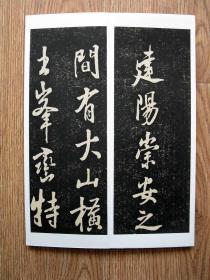 建陽崇安之
間有大山橫
亡峯巒特